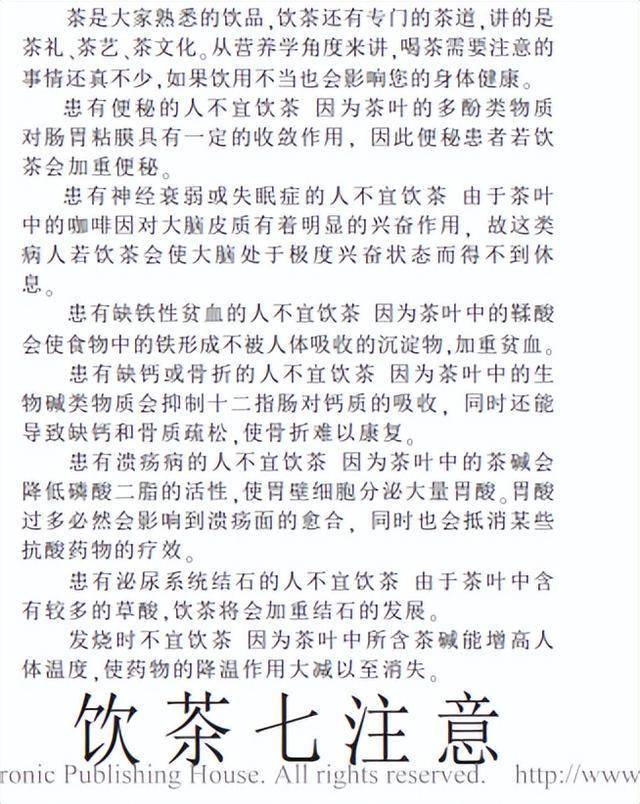 茶是大家熟悉的饮品,饮茶还有专门的茶道,讲的是
茶礼、茶艺、茶文化。从营养学角度来讲,喝茶需要注意的
事情还真不少,如果饮用不当也会影响您的身体健康。
患有便秘的人不宜饮茶 因为茶叶的多酚类物质
对肠胃粘膜具有一定的收敛作用，因此便秘患者若饮
茶会加重便秘。
患有神经衰弱或失眠症的人不宜饮茶 由于茶叶
中的咖啡因对大脑皮质有着明显的兴奋作用，故这类
病人若饮茶会使大脑处于极度兴奋状态而得不到休
息。
患有缺铁性贫血的人不宜饮茶 因为茶叶中的鞣酸
会使食物中的铁形成不被人体吸收的沉淀物,加重贫血。
患有缺钙或骨折的人不宜饮茶 因为茶叶中的生
物碱类物质会抑制十二指肠对钙质的吸收，同时还能
导致缺钙和骨质疏松,使骨折难以康复。
患有溃疡病的人不宜饮茶 因为茶叶中的茶碱会
降低磷酸二脂的活性,使胃壁细胞分泌大量胃酸。胃酸
过多必然会影响到溃疡面的愈合，同时也会抵消某些
抗酸药物的疗效。
患有泌尿系统结石的人不宜饮茶 由于茶叶中含
有较多的草酸,饮茶将会加重结石的发展。
发烧时不宜饮茶 因为茶叶中所含茶碱能增高人
体温度,使药物的降温作用大减以至消失。
饮茶七注意
ronic Publishing House. All rights reserved. http://www